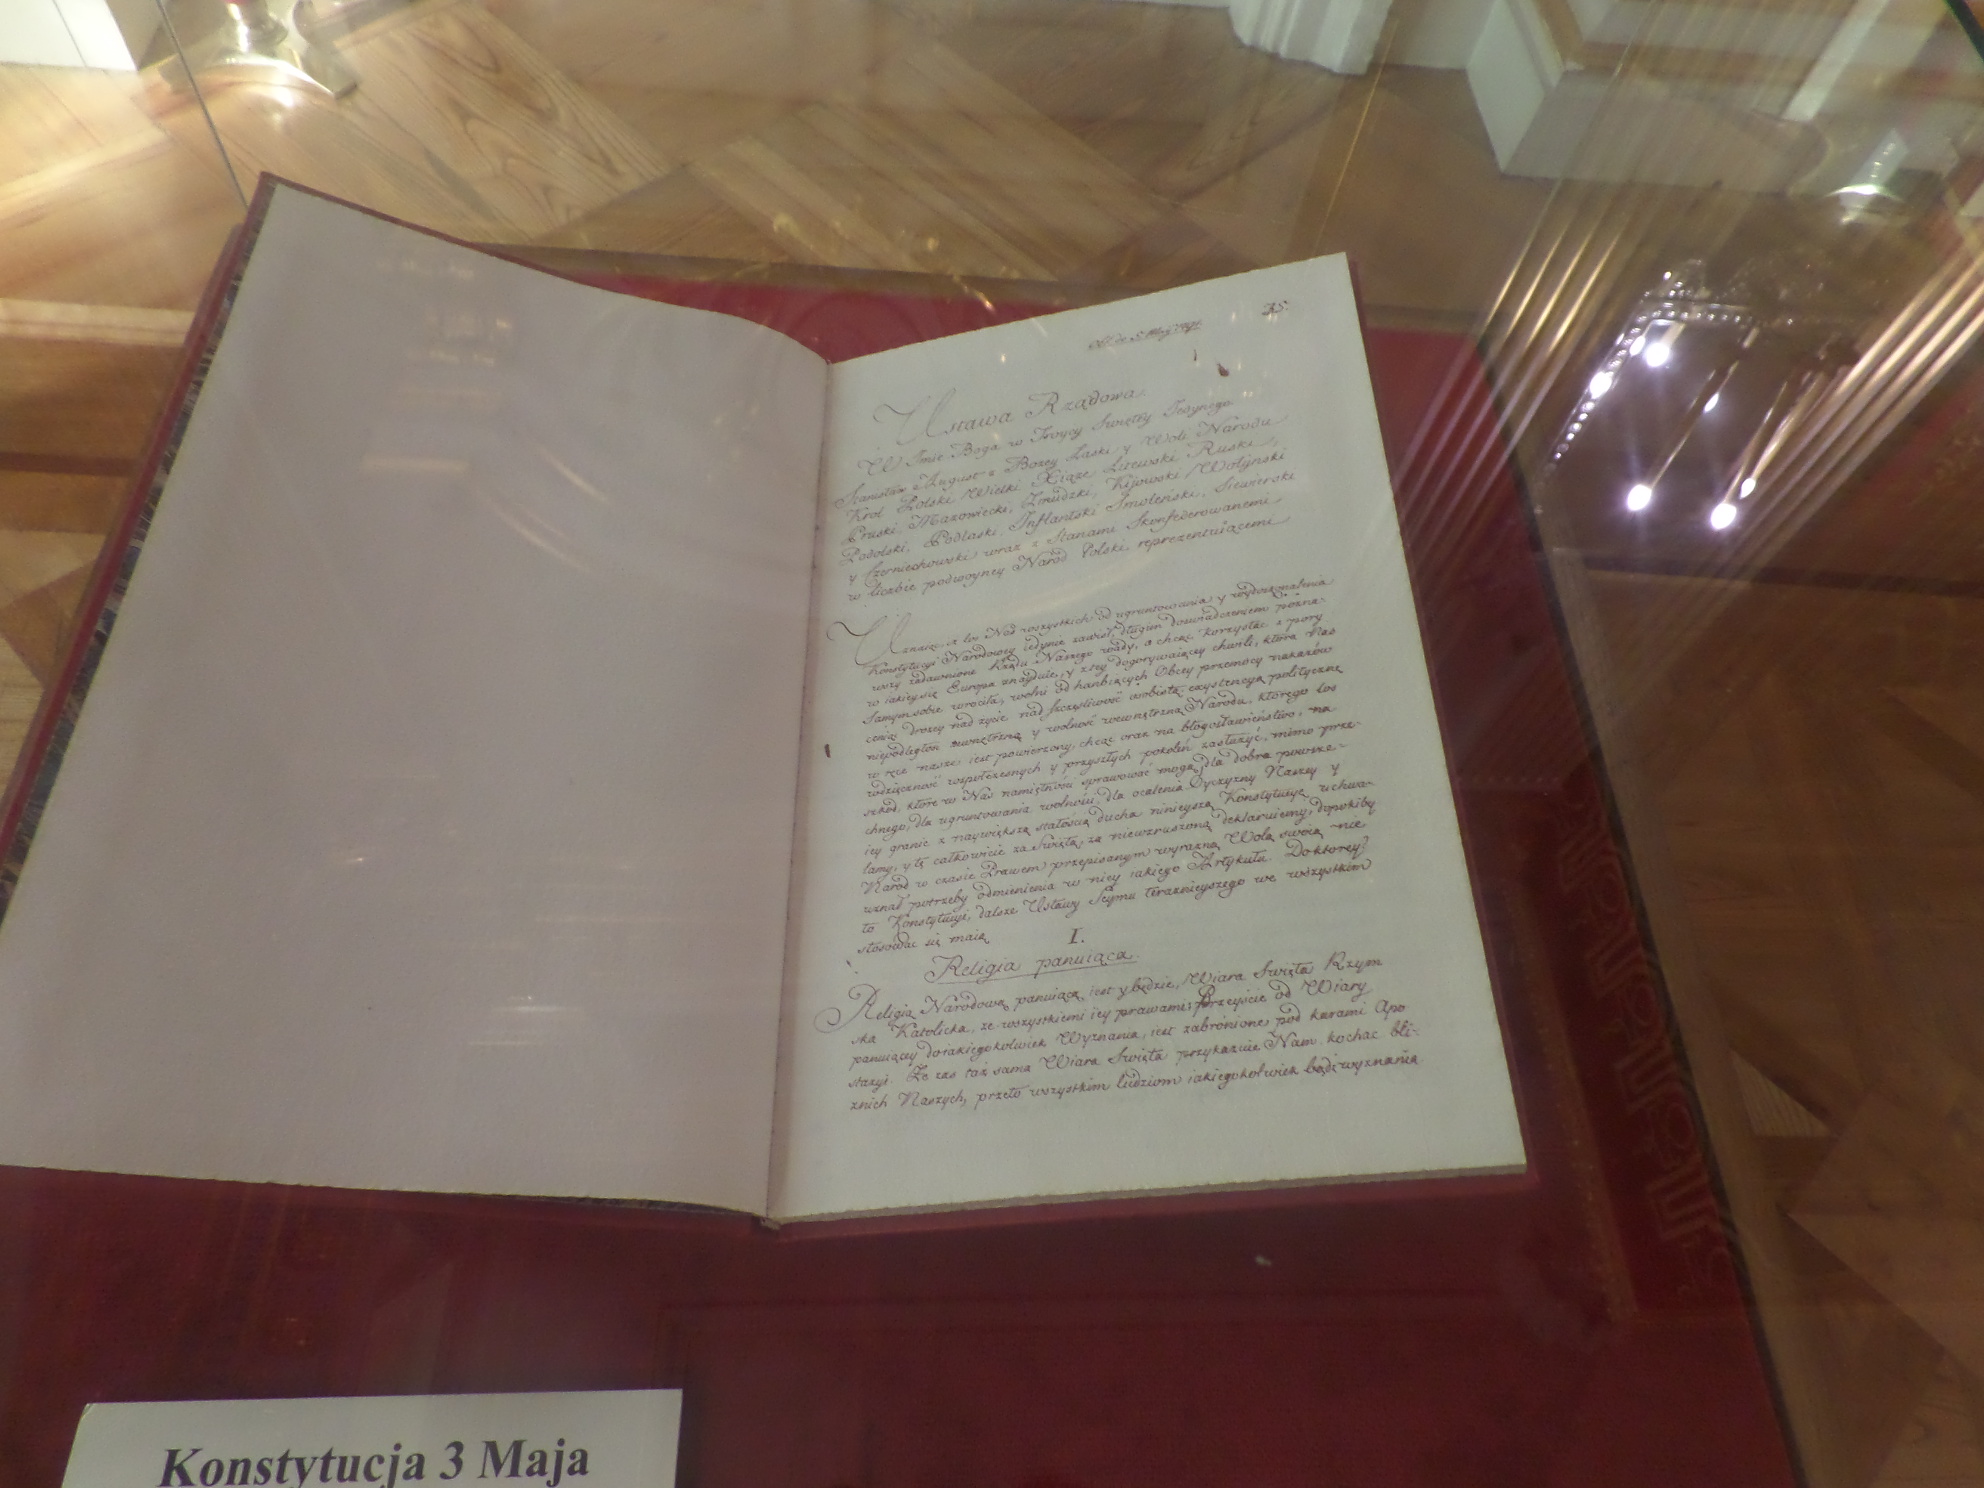 35.
5 Maij 1791.
Ustawa Rządowa.
W Imie Boga w Troycy Swiętey Jedynego.
Stanisław August z Bozey Łaski y Woli Narodu
Krol Polski Wielki Xiąze Litewski Ruski,
Pruski, Mazowiecki, Zmudzki, Kijowski, Wołynski
Podolski, Podlaski, Inflantski Smolenski, Siewierski
y Czerniechowski wraz z Stanami Skonfederowanemi
w liczbie podwoyney Narod Polski reprezentuiącemi
Uznaiąc, iz los Nas wszystkich od ugruntowania y wydoskonalenia
Konstytucyi Narodowey iedynie zawisł, długim doswiadczeniem pozna-
wszy zadawnione Rządu Naszego wady, a chcąc korzystac z pory
w iakiey się Europa znayduie, y z tey dogorywaiącey chwili, ktora Nas
samym sobie wrociła, wolni od hanbiących Obcey przemocy nakazow
ceniąc drozey nad zycie, nad szczęsliwosć osobistą exystencyą polityczną
niepodległosć zewnętrzną y wolnosć wewnętrzną Narodu, ktorego los
w ręce nasze iest powierzony, chcąc oraz na błogosławienstwo, na
wdzięcznosć wspołczesnych y przyszłych pokolen zasłuzyć, mimo prze-
szkod, ktore w Nas namiętnosci sprawować mogą, dla dobra powsze-
chnego, dla ugruntowania wolnosci, dla ocalenia Oyczyzny Naszey y
iey granic z naywiększą stałoscią ducha ninieyszą Konstytucyę uchwa-
lamy, y tę całkowicie za Swiętą, za niewzruszoną deklaruiemy, dopokiby
Narod w czasie Prawem przepisanym wyrazną Wolą swoią nie
uznał potrzeby odmienienia w niey iakiego Artykułu. Do ktorey
to Konstytucyi, dalsze Ustawy Seymu teraznieyszego we wszystkim
stosować się maią
I.
Religia panuiąca.
Religią Narodową panuiącą, iest y będzie, Wiara Swięta Rzym
ska Katolicka, ze wszystkiemi iey prawami; Przeyscie od Wiary
panuiącey do iakiegokolwiek Wyznania, iest zabronione, pod karami Apo
stazyi. Ze zas taz sama Wiara Swięta przykazuie Nam kochac bli-
znich Naszych, przeto wszystkim ludziom iakiegokolwiek bądz wyznania
Konstytucja 3 Maja